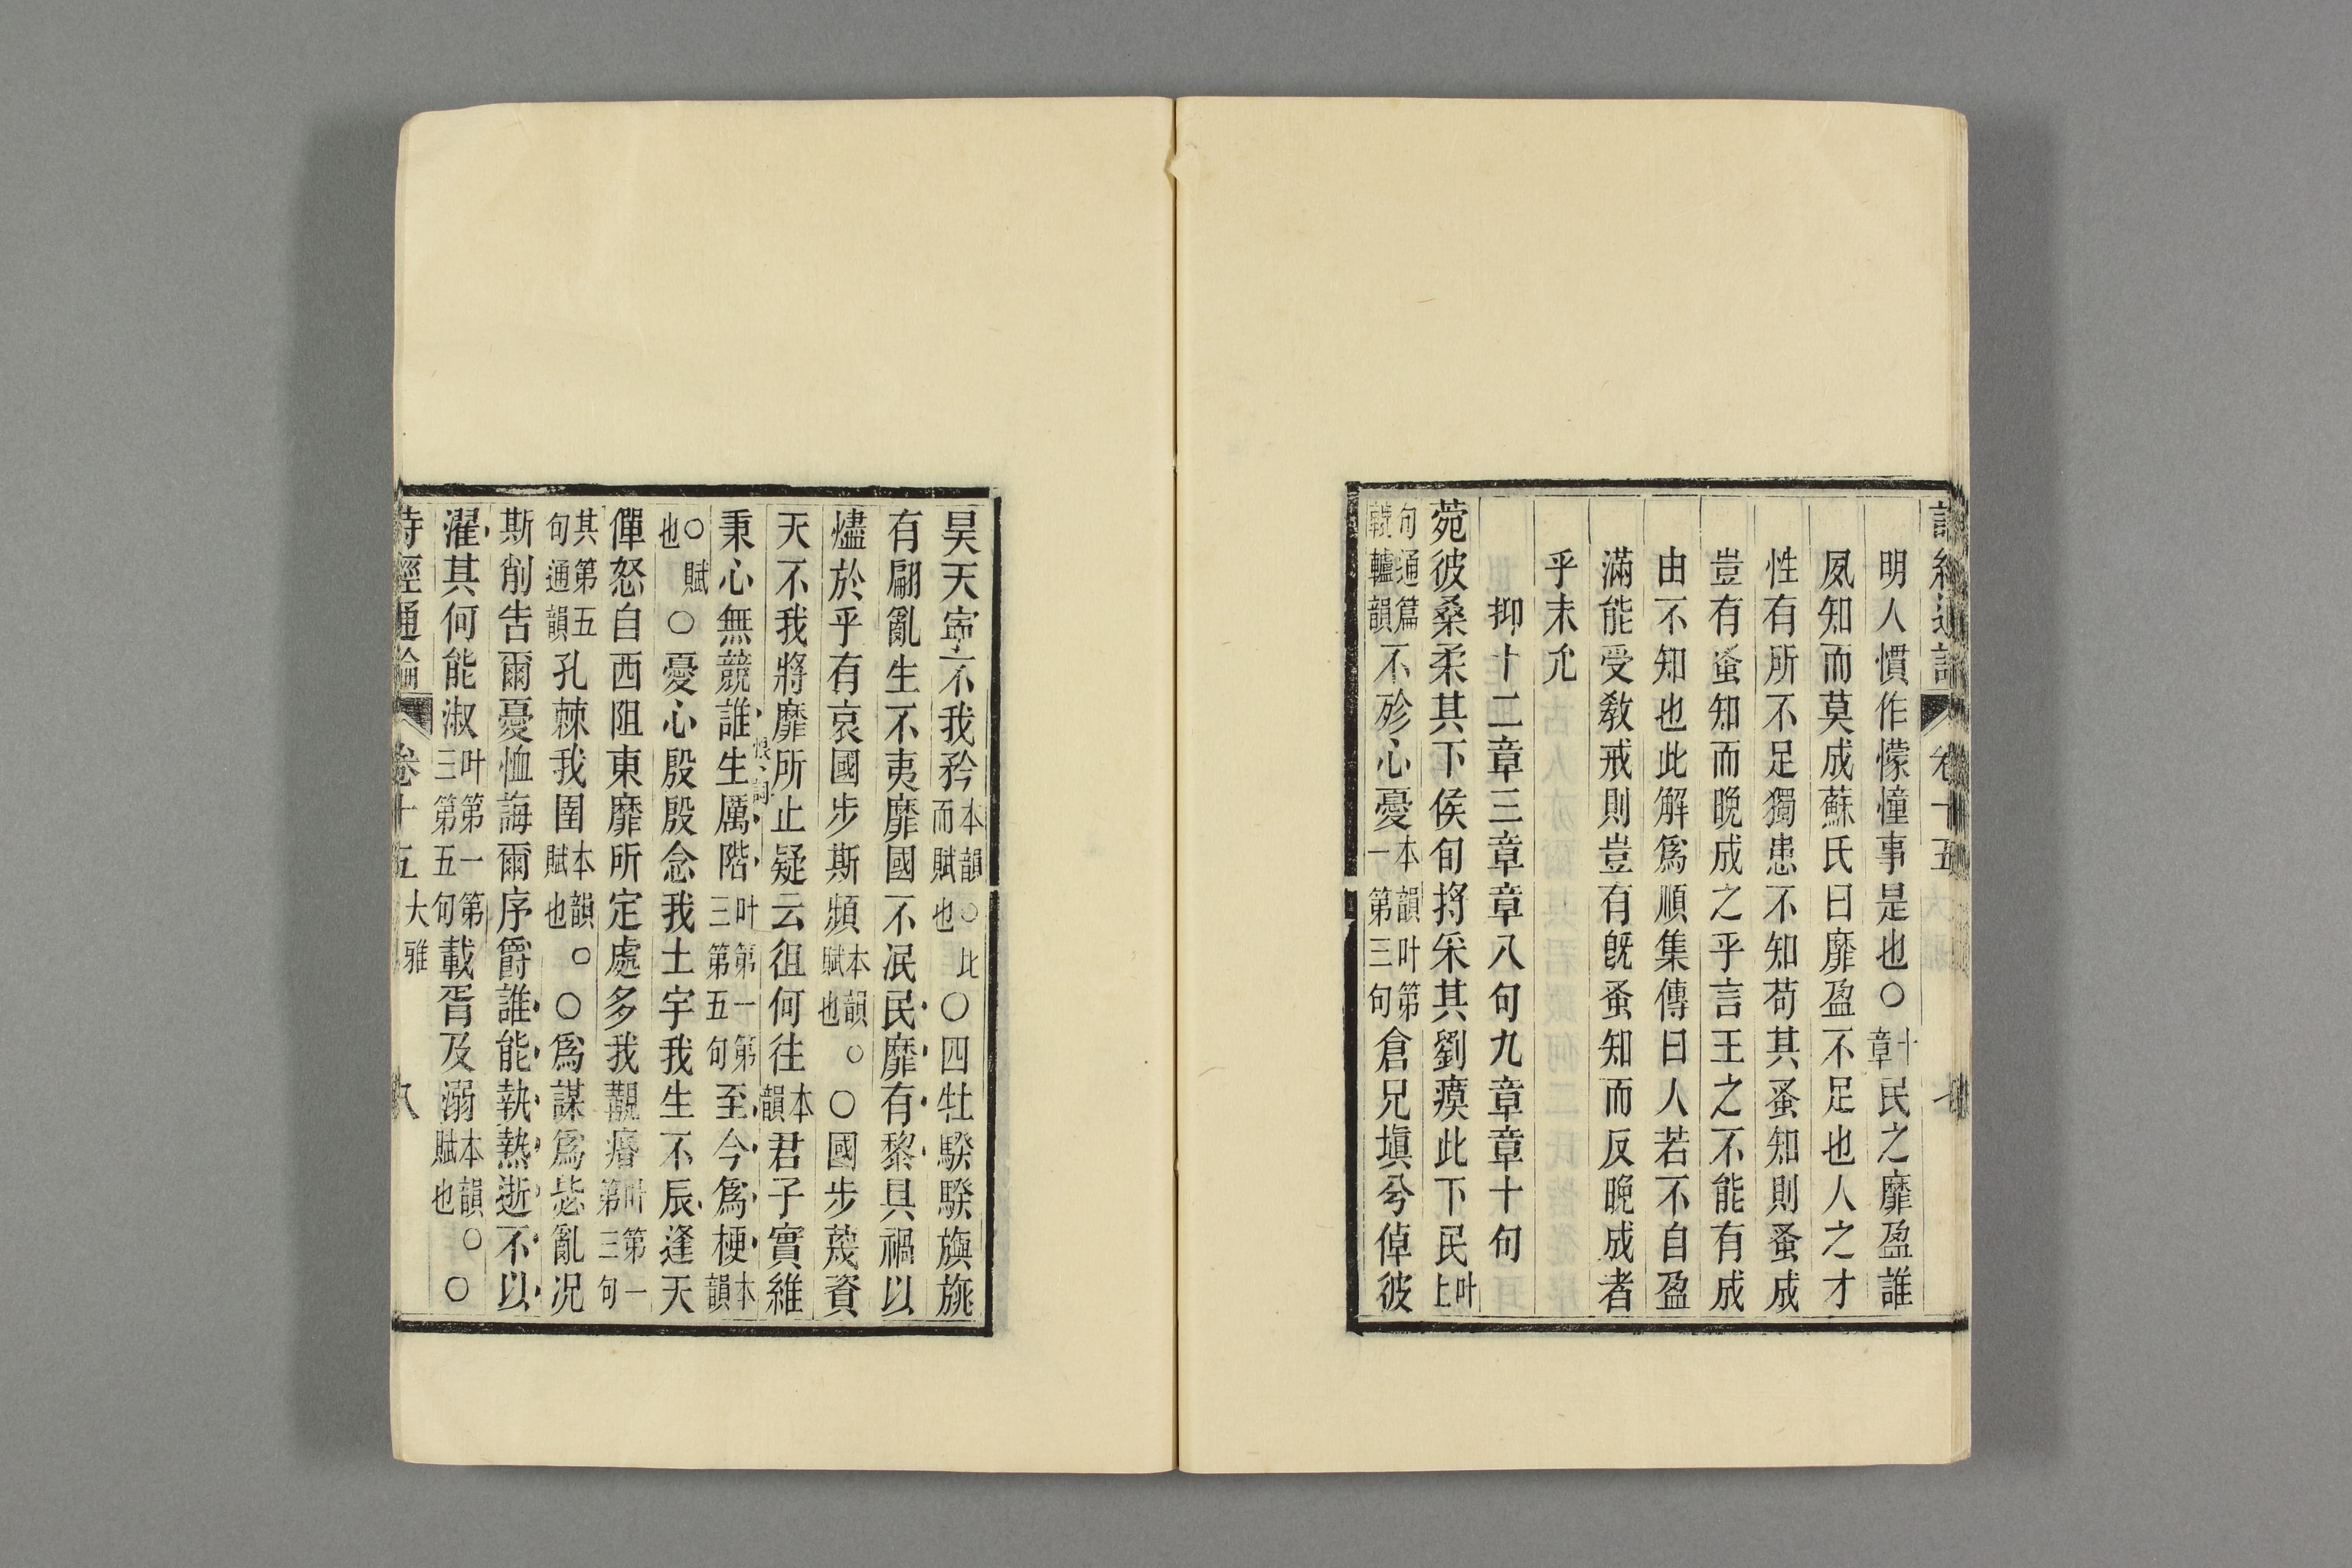 詩經通論 卷十五 七
明人慣作懞憧事是也〇十章民之靡盈誰
夙知而莫成蘇氏曰靡盈不足也人之才
性有所不足獨患不知苟其蚤知則蚤成
豈有蚤知而晚成之乎言王之不能有成
由不知也此解爲順集傳曰人若不自盈
滿能受教戒則豈有旣蚤知而反晚成者
乎未允
抑十二章三章章八句九章章十句
菀彼桑柔其下侯旬捋采其劉瘼此下民叶上
句通篇轆轤韻不殄心憂本韻叶第一第三句倉兄塡兮倬彼
昊天寍不我矜本韻〇比而賦也〇四牡騤騤旟旐
有翩亂生不夷靡國不泯民靡有黎具禍以
燼於乎有哀國步斯頻本韻賦也〇〇國步蔑資
天不我將靡所止疑云徂何往本韻君子實維
恨詞
秉心無競誰生厲階叶第一第三第五句至今爲梗本韻
〇賦也〇憂心殷殷念我土宇我生不辰逢天
僤怒自西阻東靡所定處多我覯痻叶第一第三句
其第五句通韻孔棘我圉本韻賦也〇〇爲謀爲毖亂況
斯削告爾憂恤誨爾序爵誰能執熱逝不以
濯其何能淑叶第一第三第五句載胥及溺本韻賦也〇〇
詩經通論 卷十五 大雅 八